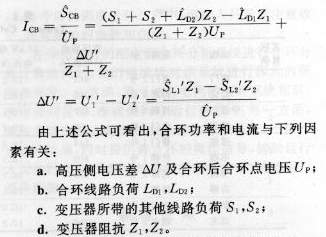 I_CB = Ŝ_CB / U̇_P = ((S₁ + S₂ + L̂_D2)Z₂ − L̂_D1Z₁) / ((Z₁ + Z₂)U_P) +
ΔU′ / (Z₁ + Z₂)
ΔU′ = U₁′ − U₂′ = (Ŝ_L1′Z₁ − Ŝ_L2′Z₂) / U̇_P
由上述公式可看出,合环功率和电流与下列因
素有关:
a. 高压侧电压差 ΔU 及合环后合环点电压 U_P;
b. 合环线路负荷 L_D1,L_D2;
c. 变压器所带的其他线路负荷 S₁,S₂;
d. 变压器阻抗 Z₁,Z₂。